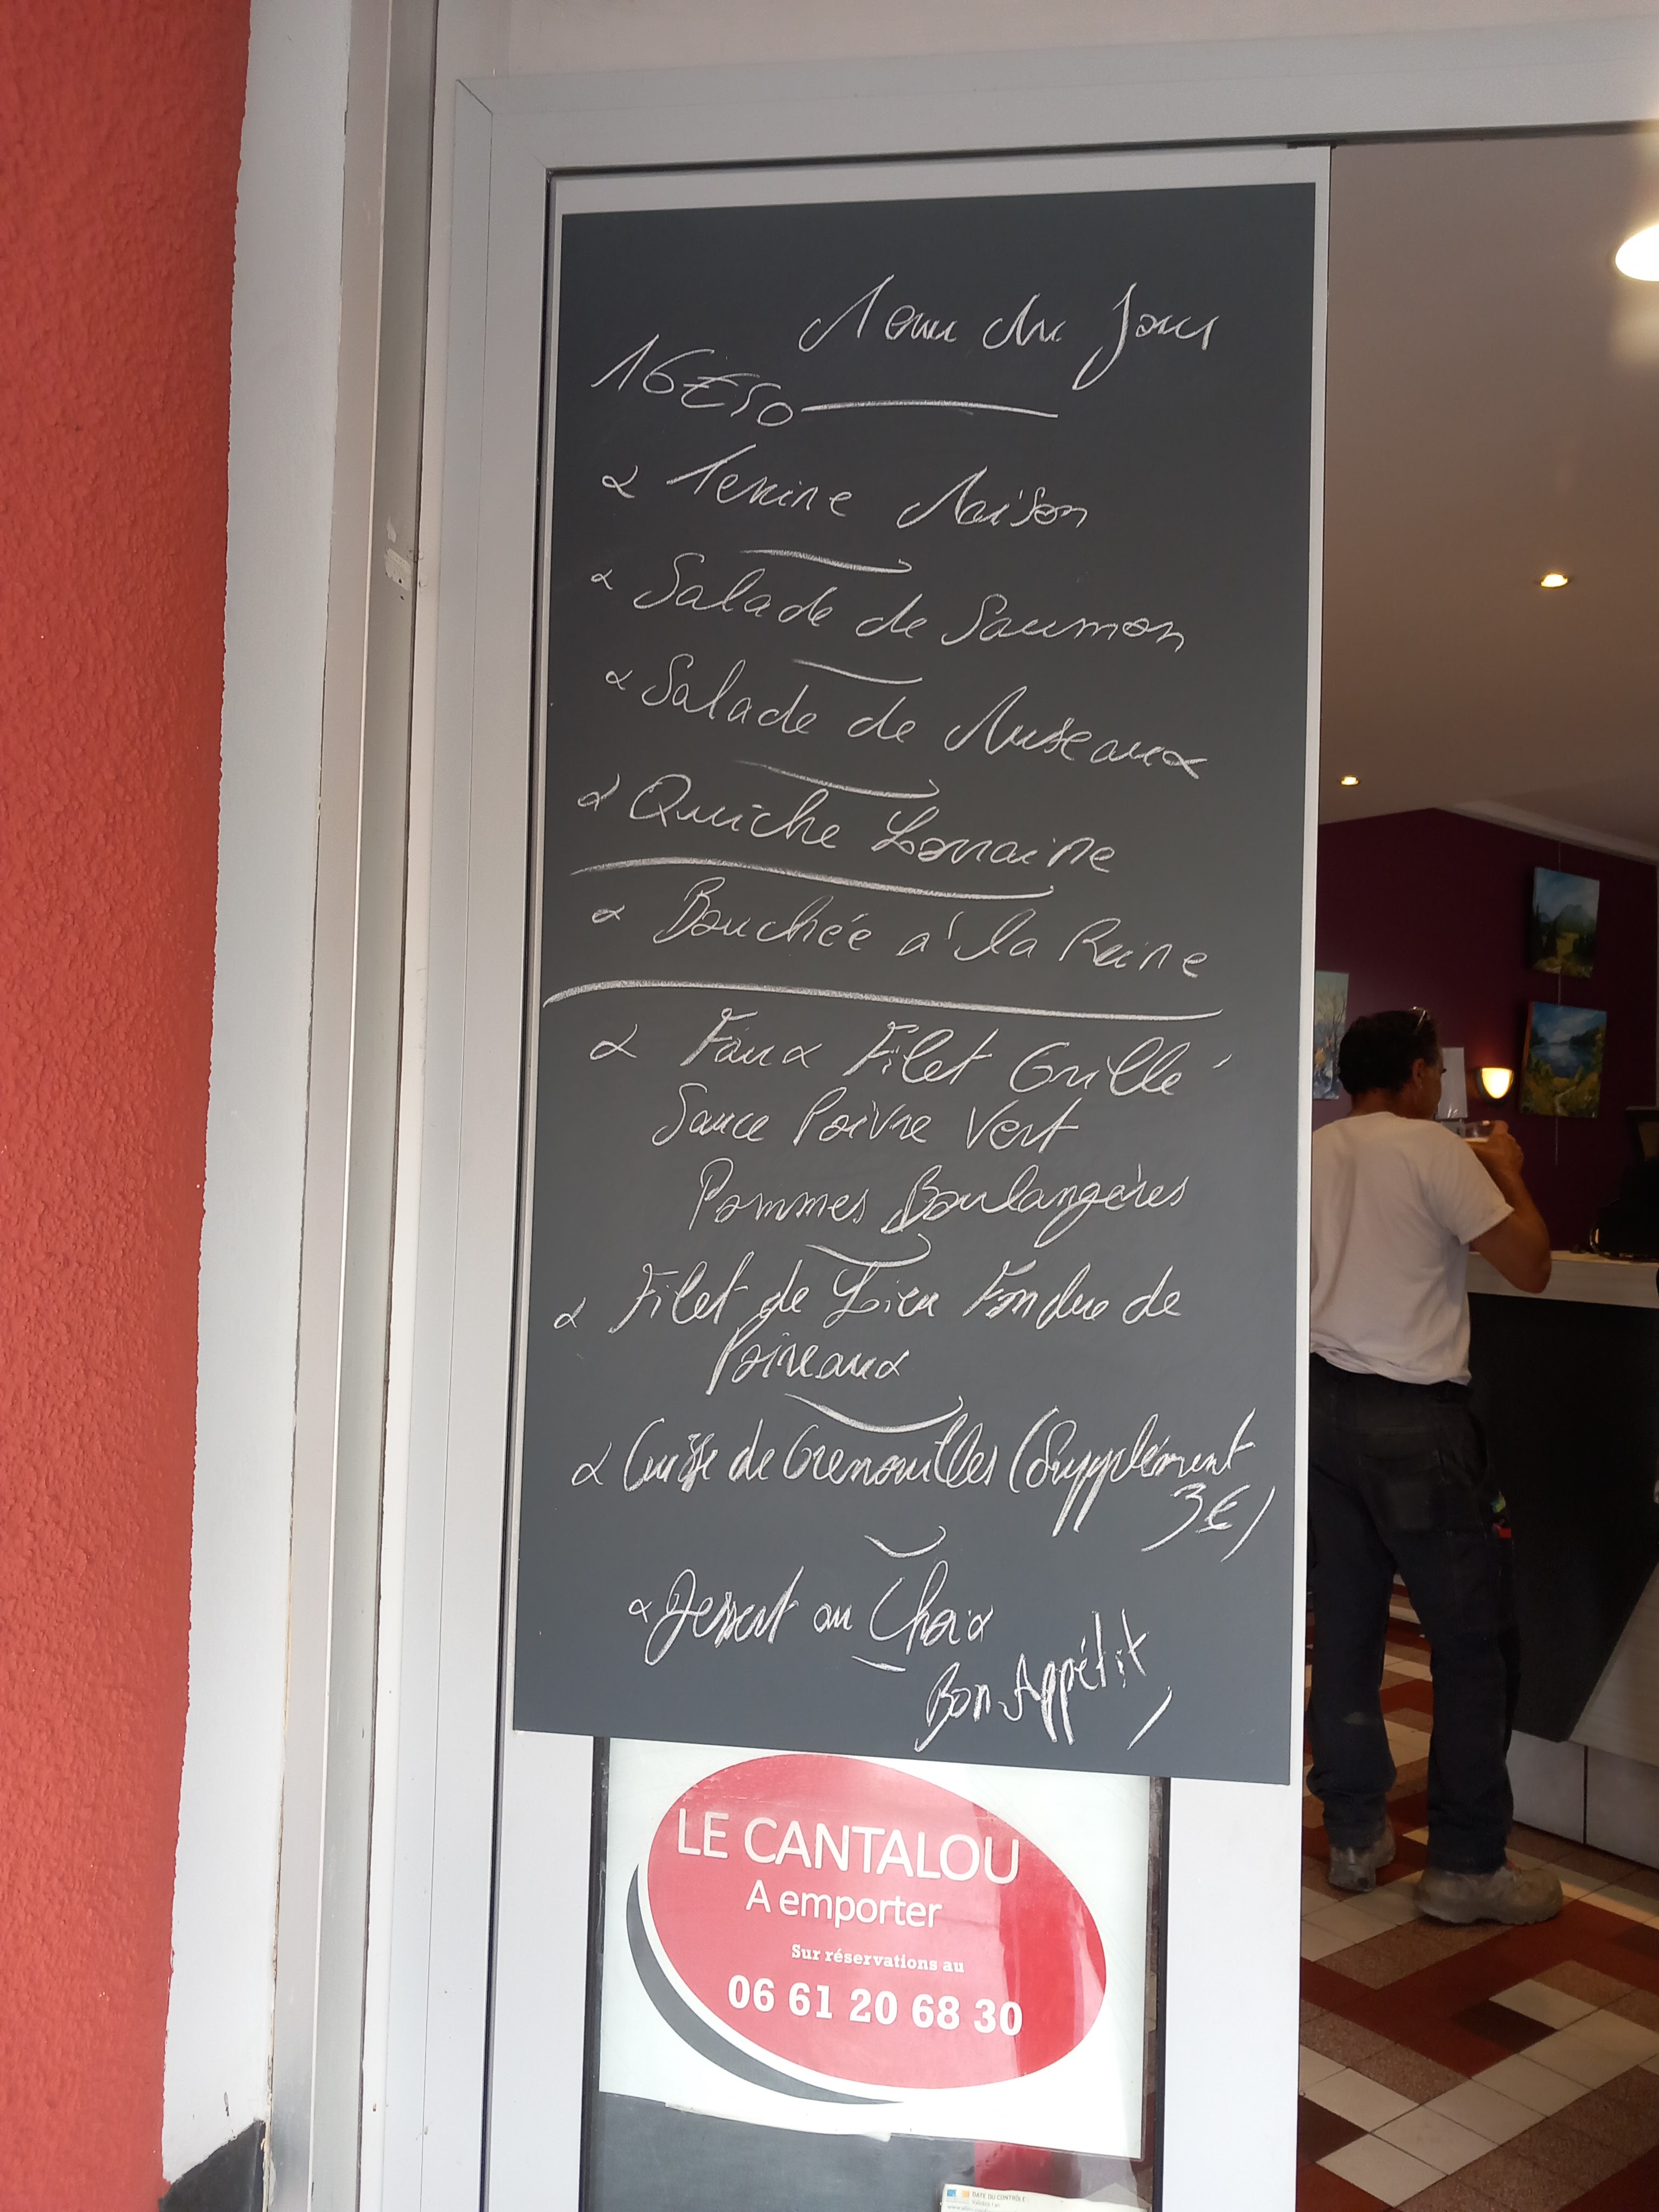 Menu du Jour
16€50
Terrine Maison
Salade de Saumon
Salade de Museaux
Quiche Lorraine
Bouchée à la Reine
Faux Filet Grillé
Sauce Poivre Vert
Pommes Boulangères
Filet de Lieu Fondue de
Poireaux
Cuisse de Grenouilles (Supplément
3€)
Dessert au Choix
Bon Appétit
LE CANTALOU
A emporter
Sur réservations au
06 61 20 68 30
DATE DU CONTRÔLE